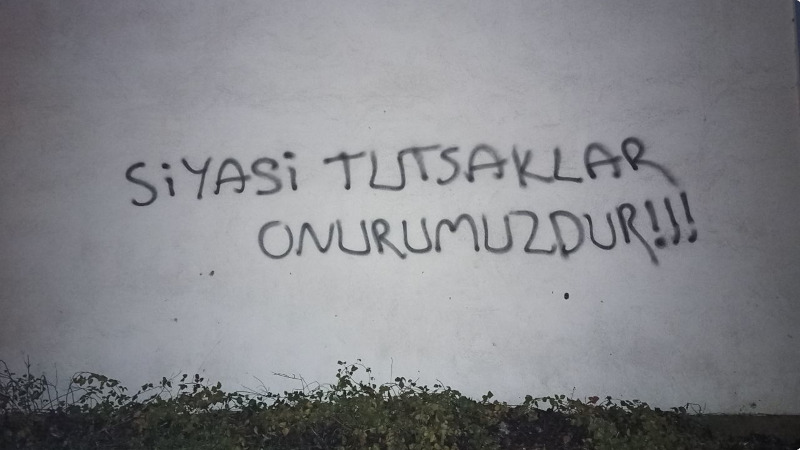 SiYASi TUTSAKLAR
ONURUMUZDUR!!!